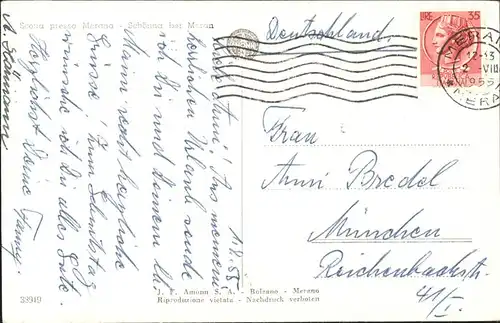 Scena presso Merano - Schönna bei Meran
Deutschland.
LIRE 35
MERANO
12-13
2.-VIII
1955
MERANO
11.8.55
herrlichen Urlaub sende
ich Dir und Deinem lb.
Mann recht herzliche
Grüsse! Zum Geburtstag
wünsche ich Dir alles Gute.
Herzlichst Deine Fanny.
Frau
Anni Bredel
München
Reichenbachstr.
41/I.
J. F. Amonn S. A. - Bolzano - Merano
Riproduzione vietata - Nachdruck verboten
33949